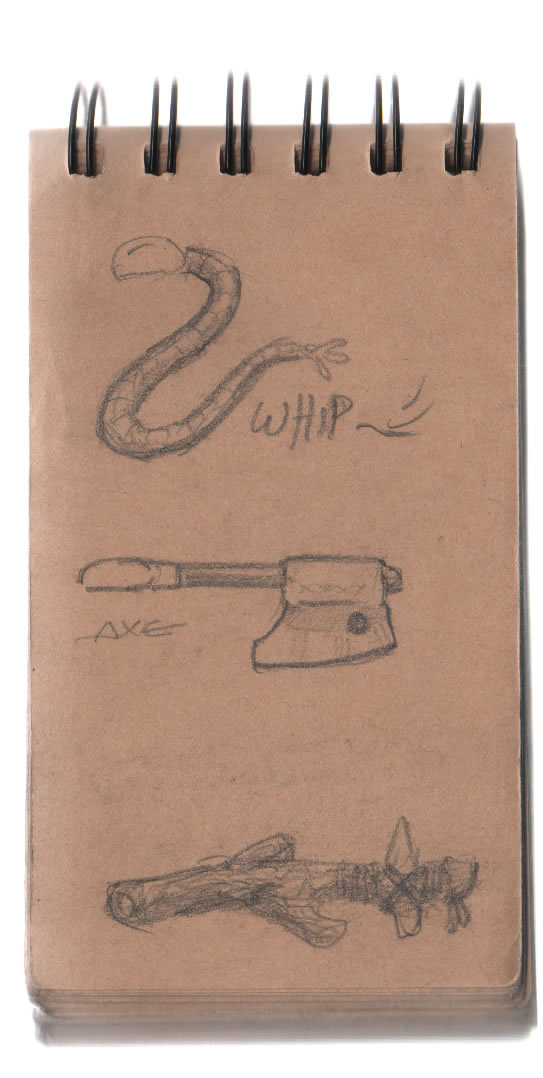 WHIP
AXE